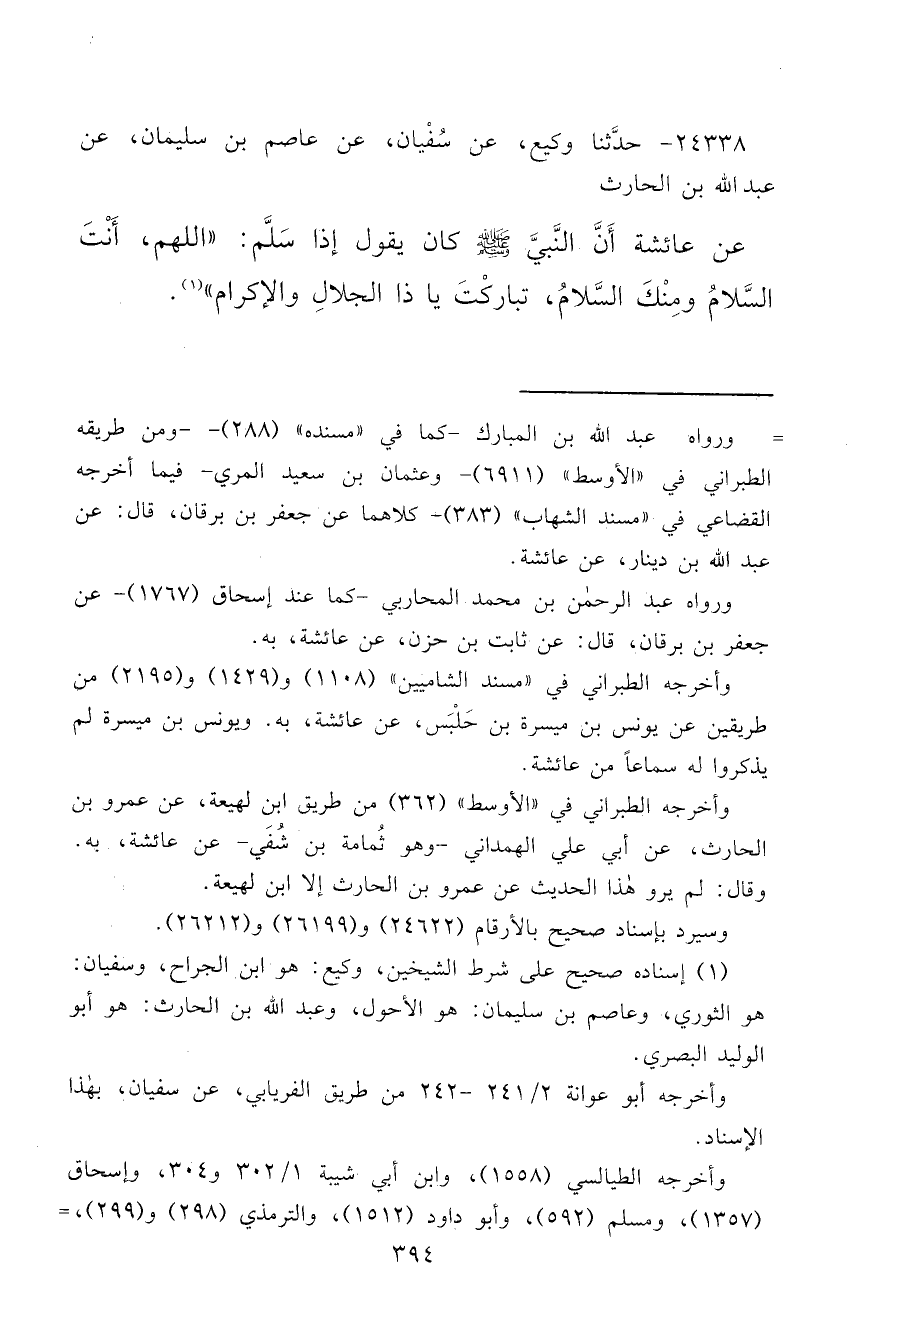 ٢٤٣٣٨- حدَّثنا وكيع، عن سُفْيان، عن عاصم بن سليمان، عن
عبد الله بن الحارث
عن عائشة أَنَّ النَّبيَّ ﷺ كان يقول إذا سَلَّم: «اللهم، أَنْتَ
السَّلامُ ومِنْكَ السَّلامُ، تباركْتَ يا ذا الجلالِ والإكرام»(١).
= ورواه عبد الله بن المبارك -كما في «مسنده» (٢٨٨)- -ومن طريقه
الطبراني في «الأوسط» (٦٩١١)- وعثمان بن سعيد المري- فيما أخرجه
القضاعي في «مسند الشهاب» (٣٨٣)- كلاهما عن جعفر بن برقان، قال: عن
عبد الله بن دينار، عن عائشة.
ورواه عبد الرحمٰن بن محمد المحاربي -كما عند إسحاق (١٧٦٧)- عن
جعفر بن برقان، قال: عن ثابت بن حزن، عن عائشة، به.
وأخرجه الطبراني في «مسند الشاميين» (١١٠٨) و(١٤٢٩) و(٢١٩٥) من
طريقين عن يونس بن ميسرة بن حَلْبَس، عن عائشة، به. ويونس بن ميسرة لم
يذكروا له سماعاً من عائشة.
وأخرجه الطبراني في «الأوسط» (٣٦٢) من طريق ابن لهيعة، عن عمرو بن
الحارث، عن أبي علي الهمداني -وهو ثُمامة بن شُفَي- عن عائشة، به.
وقال: لم يرو هٰذا الحديث عن عمرو بن الحارث إلا ابن لهيعة.
وسيرد بإسناد صحيح بالأرقام (٢٤٦٢٢) و(٢٦١٩٩) و(٢٦٢١٢).
(١) إسناده صحيح على شرط الشيخين، وكيع: هو ابن الجراح، وسفيان:
هو الثوري، وعاصم بن سليمان: هو الأحول، وعبد الله بن الحارث: هو أبو
الوليد البصري.
وأخرجه أبو عوانة ٢/ ٢٤١ -٢٤٢ من طريق الفريابي، عن سفيان، بهٰذا
الإسناد.
وأخرجه الطيالسي (١٥٥٨)، وابن أبي شيبة ١/ ٣٠٢ و٣٠٤، وإسحاق
(١٣٥٧)، ومسلم (٥٩٢)، وأبو داود (١٥١٢)، والترمذي (٢٩٨) و(٢٩٩)، =
٣٩٤